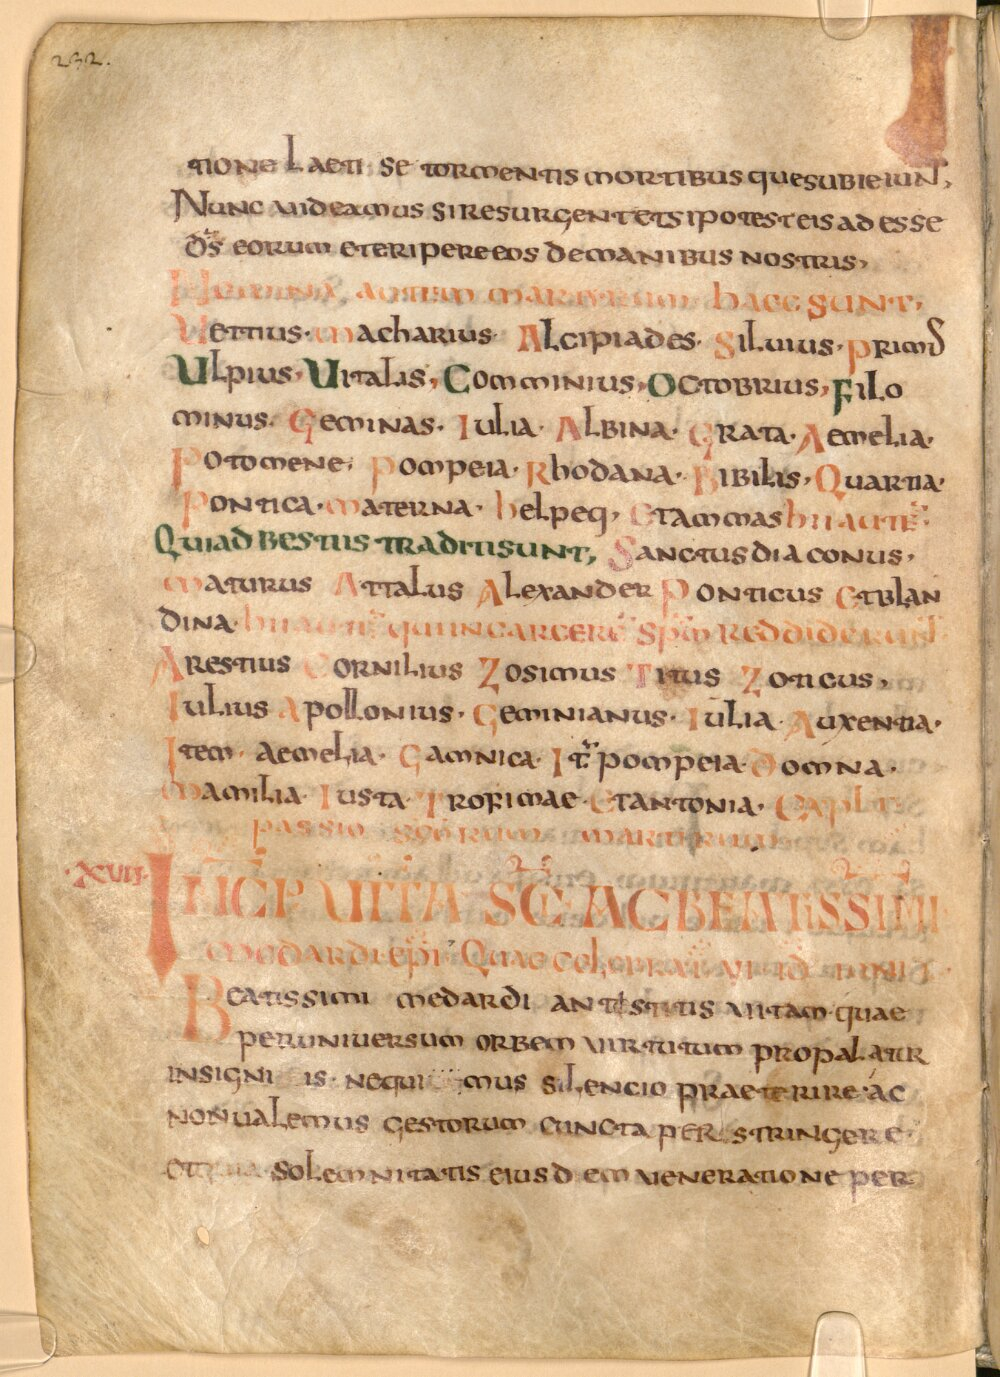 232.
tione Laeti se tormentis mortibus quesubieruNT,
Nunc uideamus siresurgentetsipotesteisadesse
ds eorum eteripereeos demanibus nostris,
Nomina autem martyrum haec sunt,
Uettius· macharius· Alcipiades· Siluius· primus
Ulpius, Uitalis, Comminius, Octobrius, Filo
minus· Geminas· Iulia· Albina· Grata· Aemelia·
Potomene, pompeia· Rhodana· Bibilis, Quartia·
Pontica· materna· helpeq, Etammas hiiaute
Quiadbestiis traditisunt, Sanctusdiaconus,
maturus Attalus Alexander Ponticus Etblan
dina· hiiaute quiincarcere spm reddiderunt
Arestius Cornilius Zosimus Titus Zoticus,
Iulius Apollonius, Geminianus· Iulia· Auxentia·
Item· aemelia· Gamnica· It pompeia· Domna·
mamilia· Iusta· Trofimae· Etantonia· Expl
passio scorum martyrum
·XVII· INCP UITA SCI AC BEATISSIMI
medardi epi Quae
Beatissimi medardi antestitis uitam quae
peruniuersum orbem uirtutum propalatur
insigni is· nequi mus silencio praeterire· ac
nonualemus gestorum cuncta perstringere·
solemnitatis eiusdem ueneratione per